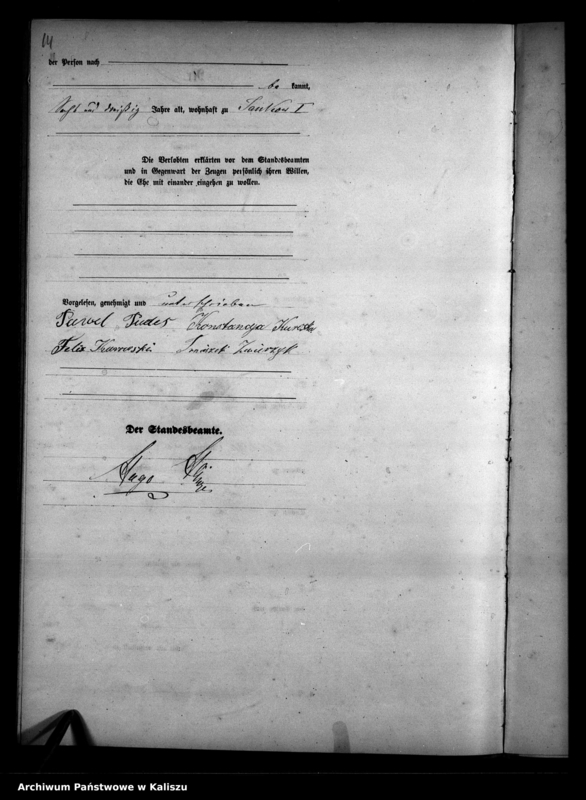 14
der Person nach
be kannt,
Acht und dreißig Jahre alt, wohnhaft zu Saukow I
Die Verlobten erklärten vor dem Standesbeamten
und in Gegenwart der Zeugen persönlich ihren Willen,
die Ehe mit einander eingehen zu wollen.
Vorgelesen, genehmigt und unterschrieben
Pawel Pudes Konstancja
Felix Kurowski
Der Standesbeamte.
Hugo
Archiwum Państwowe w Kaliszu